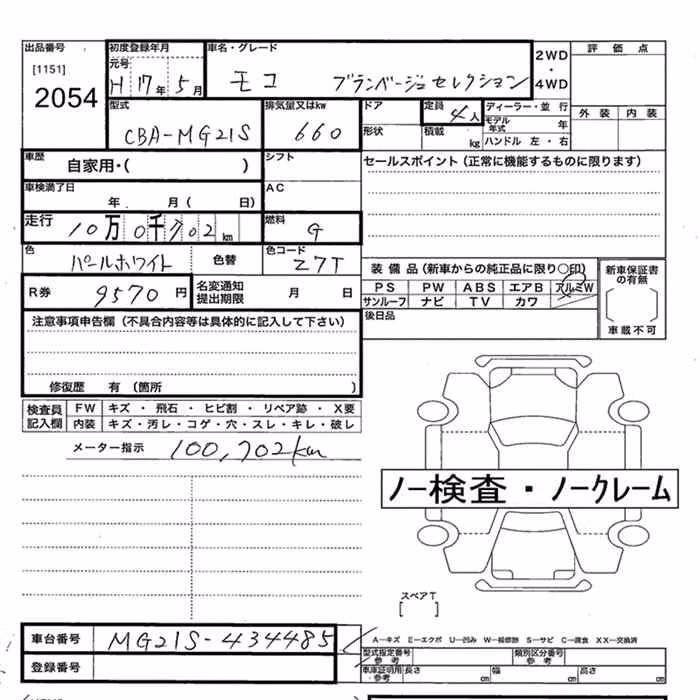 出品番号 初度登録年月 車名・グレード 2WD・4WD 評価点
[1151] 元号
2054 H 17年 5月 モコ ブランベージュセレクション
型式 排気量又はkw ドア 定員 4人 ディーラー・並行 外装 内装
CBA-MG21S 660 形状 積載 kg モデル年式 年
ハンドル 左・右
車歴 自家用・( ) シフト セールスポイント(正常に機能するものに限ります)
車検満了日 年 月( 日) AC
走行 10万0千702km 燃料 G
色 パールホワイト 色替 色コード Z7T 装備品(新車からの純正品に限り○印) 新車保証書の有無
PS PW ABS エアB アルミW
R券 9570円 名変通知提出期限 月 日 サンルーフ ナビ TV カワ 車載不可
後日品
注意事項申告欄(不具合内容等は具体的に記入して下さい)
修復歴 有(箇所 )
検査員記入欄 FW キズ・飛石・ヒビ割・リペア跡・X要
内装 キズ・汚レ・コゲ・穴・スレ・キレ・破レ
メーター指示 100,702km
ノー検査・ノークレーム
スペアT
[ ]
車台番号 MG21S-434485 A―キズ E―エクボ U―凹み W―板修跡 S―サビ C―腐食 XX―交換済
型式指定番号 参考 類別区分番号 参考
登録番号 車庫証明用・参考 長さ cm 幅 cm 高さ cm